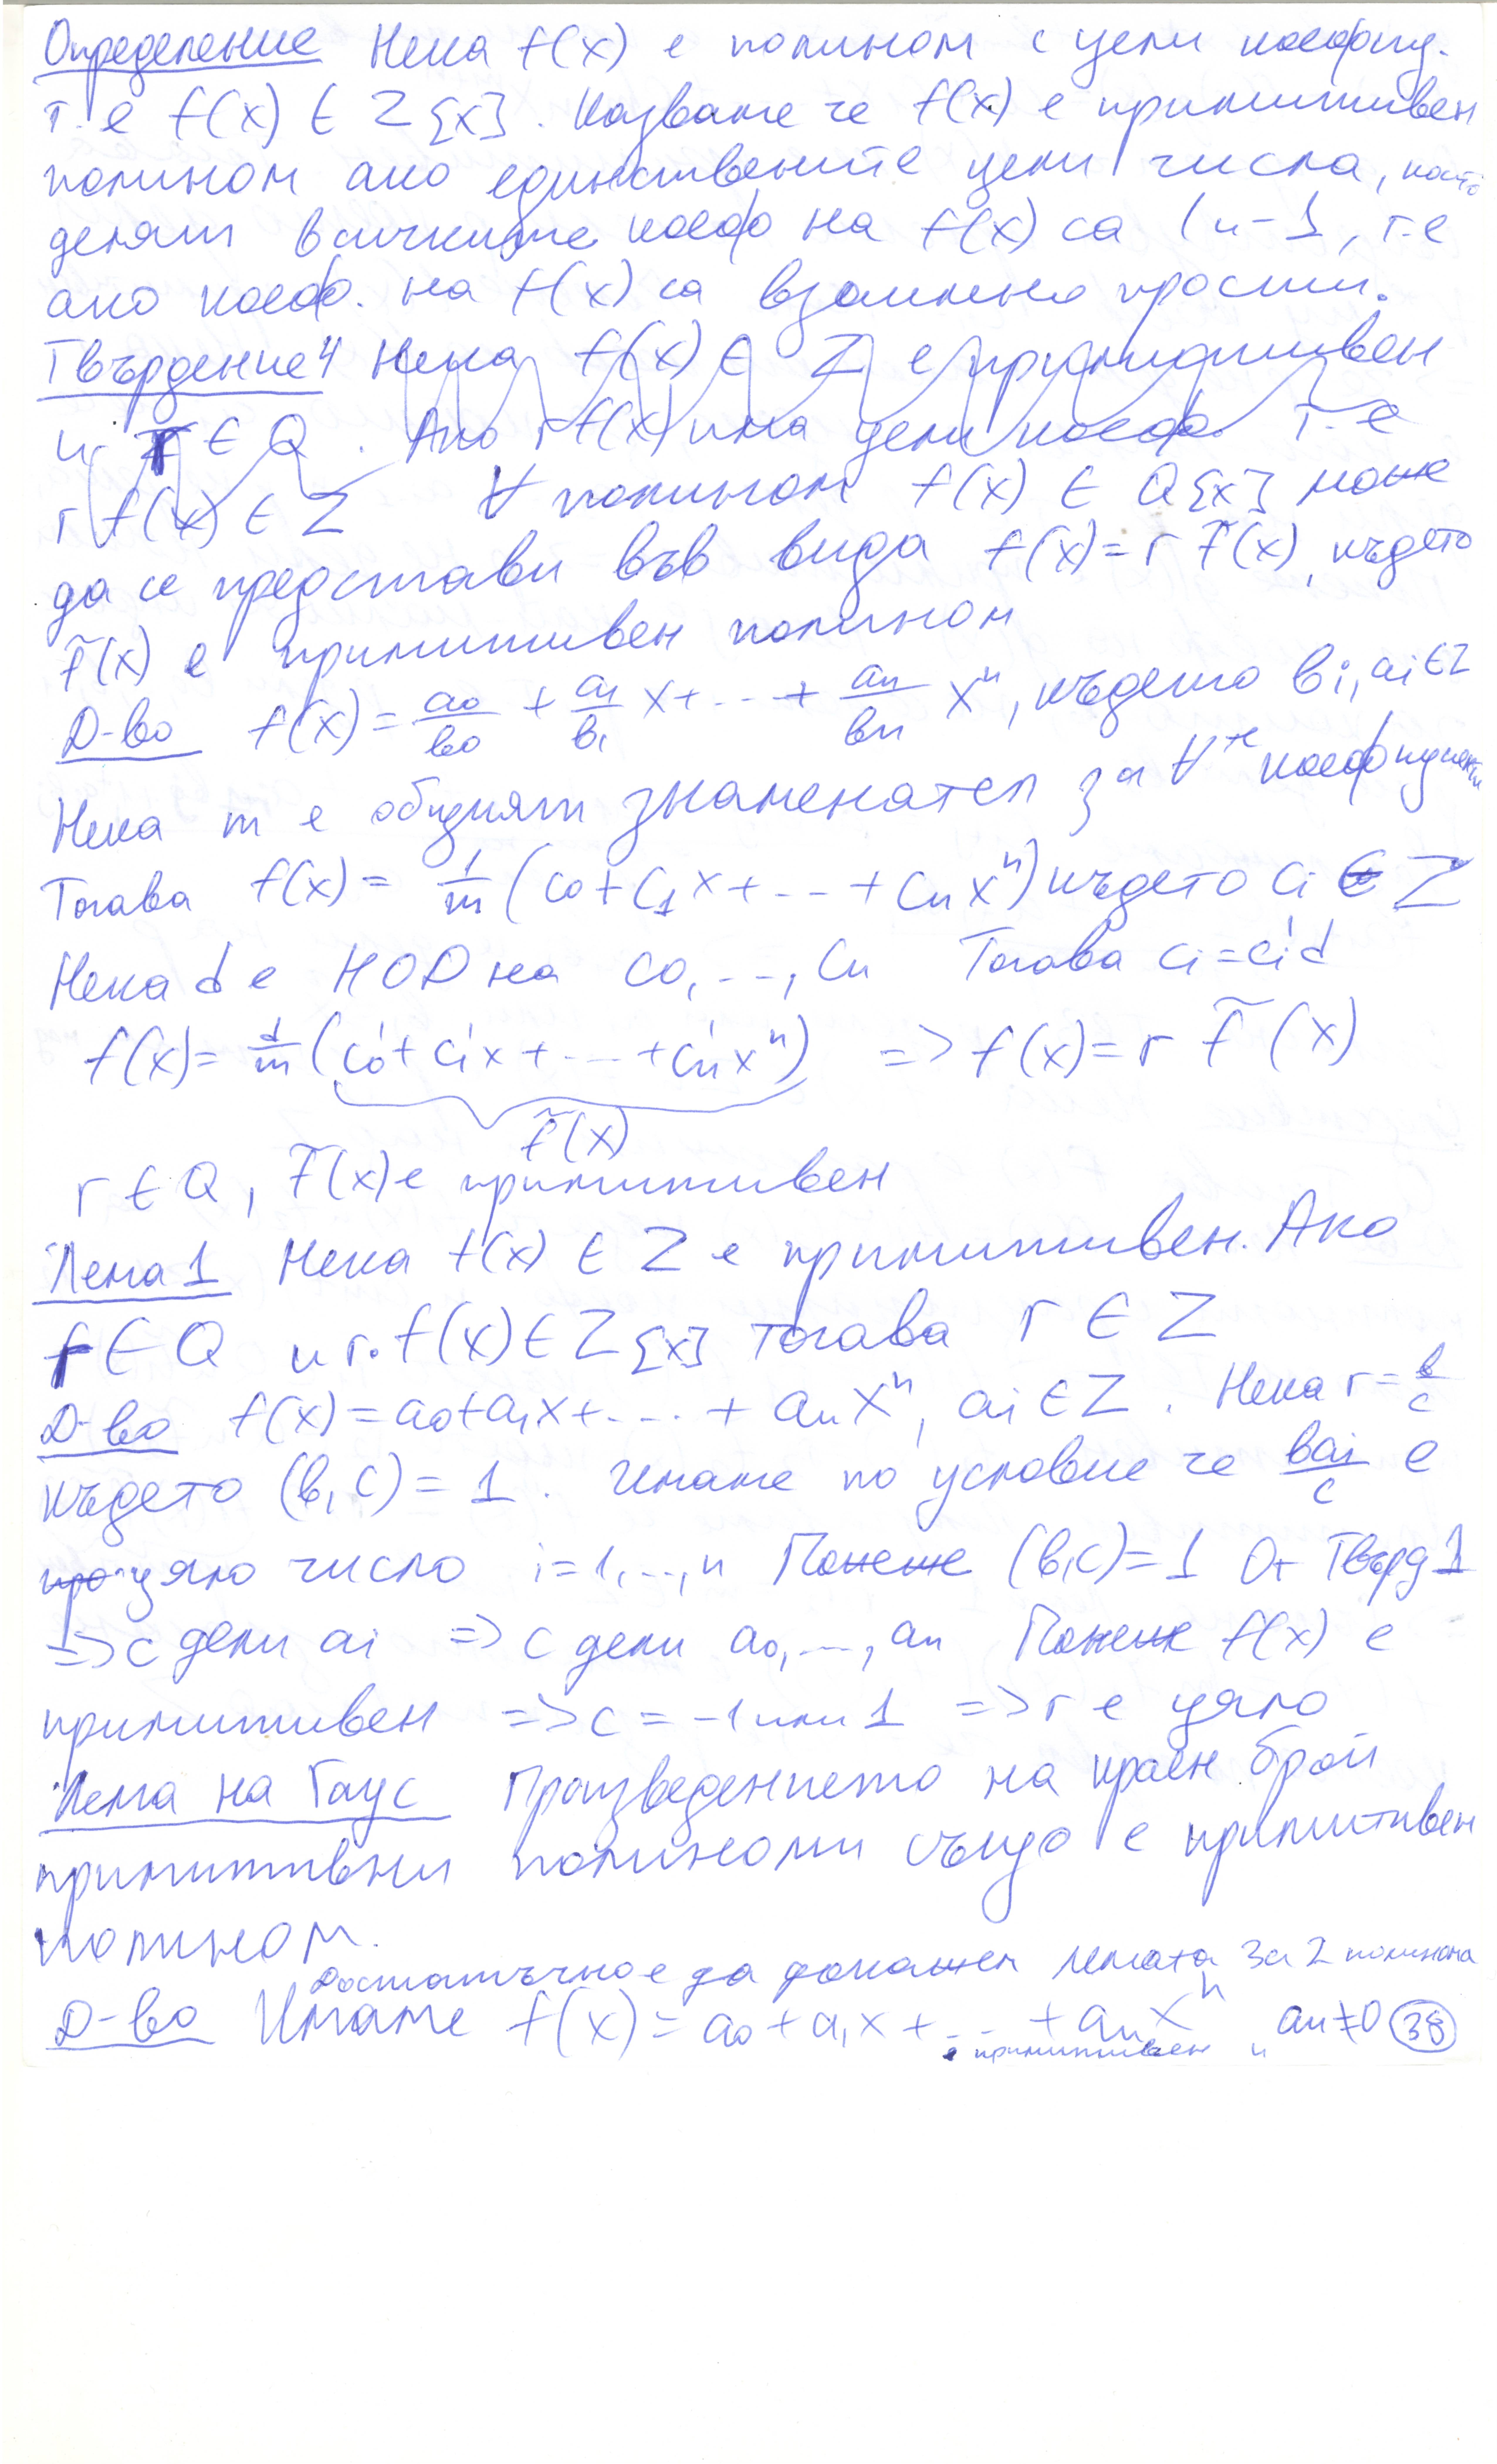 Определение Нека f(x) е полином с цели коефиц.
т.е f(x) ∈ Z{x}. Казваме че f(x) е примитивен
полином ако единствените цели числа, които
делят всичките коеф на f(x) са 1 и -1, т.е
ако коеф. на f(x) са взаимно прости.
Твърдение 4 Нека f(x) ∈ Z е примитивен
и r ∈ Q. Ако r f(x) има цели коеф. т.е
r f(x) ∈ Z ∀ полином f(x) ∈ Q{x} може
да се представи във вида f(x) = r f̃(x), където
f̃(x) е примитивен полином
Д-во f(x) = a0/b0 + a1/b1 x + ... + an/bn x^n, където bi, ai ∈ Z
Нека m е общият знаменател за ∀те коефициенти
Тогава f(x) = 1/m (c0 + c1 x + ... + cn x^n) където ci ∈ Z
Нека d е НОД на c0, ..., cn Тогава ci = ci'd
f(x) = d/m (c0' + c1'x + ... + cn'x^n) => f(x) = r f̃(x)
f̃(x)
r ∈ Q, f̃(x) е примитивен
Лема 1 Нека f(x) ∈ Z е примитивен. Ако
r ∈ Q и r.f(x) ∈ Z{x} тогава r ∈ Z
Д-во f(x) = a0 + a1x + .... + an x^n, ai ∈ Z. Нека r = b/c
където (b, c) = 1. Имаме по условие че bai/c е
цяло число i = 1, ..., n Понеже (b,c) = 1 От Твърд 1
=> c дели ai => c дели a0, ..., an Понеже f(x) е
примитивен => c = -1 или 1 => r е цяло
Лема на Гаус Произведението на краен брой
примитивни полиноми също е примитивен
полином.
Достатъчно е да докажем лемата за 2 полинома
Д-во Имаме f(x) = a0 + a1x + ... + an x^n, an ≠ 0 38
е примитивен и